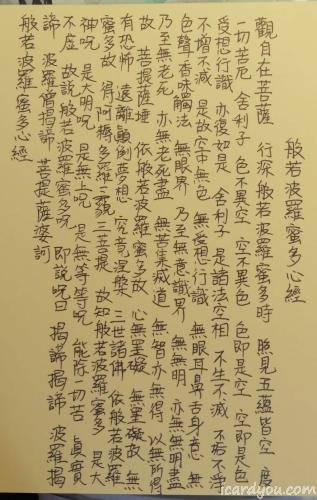 般若波羅蜜多心經
觀自在菩薩 行深般若波羅蜜多時 照見五蘊皆空 度
一切苦厄 舍利子 色不異空 空不異色 色即是空 空即是色
受想行識 亦復如是 舍利子 是諸法空相 不生不滅 不垢不淨
不增不減 是故空中無色 無受想行識 無眼耳鼻舌身意 無
色聲香味觸法 無眼界 乃至無意識界 無無明 亦無無明盡
乃至無老死 亦無老死盡 無苦集滅道 無智亦無得 以無所得
故 菩提薩埵 依般若波羅蜜多故 心無罣礙 無罣礙故 無
有恐怖 遠離顛倒夢想 究竟涅槃 三世諸佛 依般若波羅
蜜多故 得阿耨多羅三藐三菩提 故知般若波羅蜜多 是大
神呪 是大明呪 是無上呪 是無等等呪 能除一切苦 真實
不虛 故說般若波羅蜜多呪 即說呪曰 揭諦揭諦 波羅揭
諦 波羅僧揭諦 菩提薩婆訶
般若波羅蜜多心經
icardyou.com